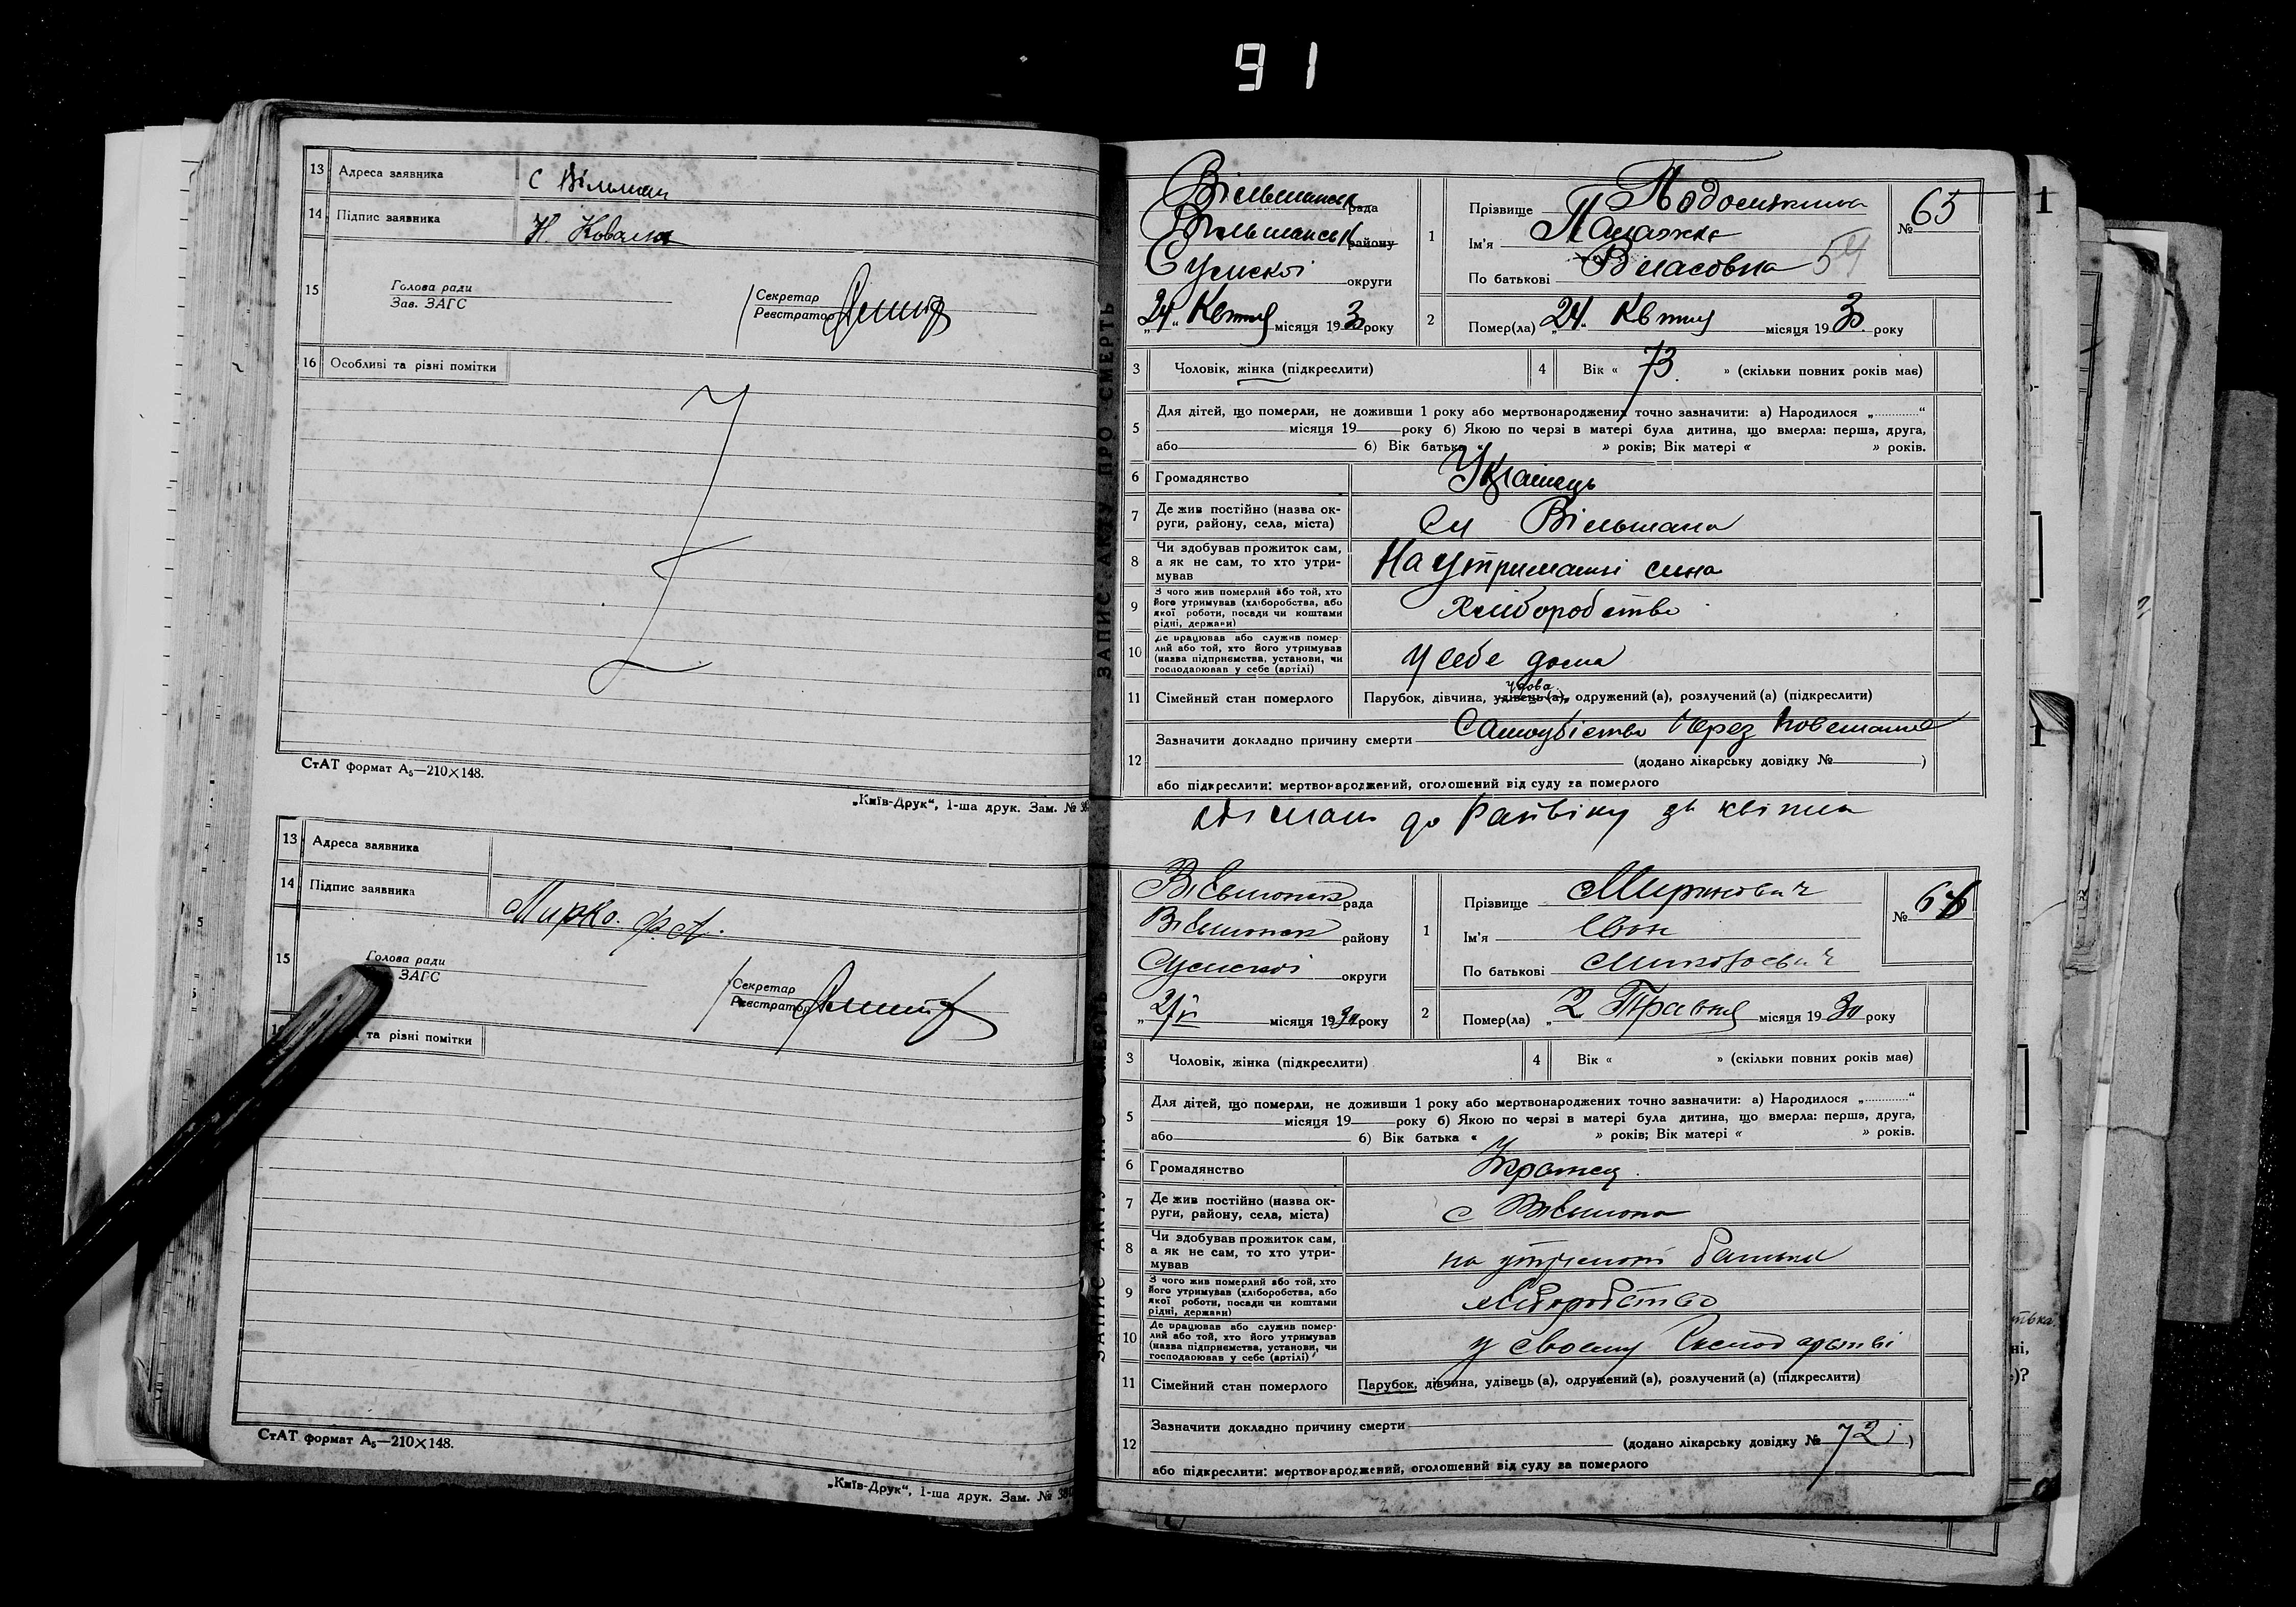 91
13 Адреса заявника с Вільшан
14 Підпис заявника Н. Ковала
15 Голова ради
Зав. ЗАГС
Секретар
Реєстратор
16 Особливі та різні помітки
СтАТ формат А₅—210×148.
„Київ-Друк“, 1-ша друк. Зам. №
13 Адреса заявника
14 Підпис заявника Мирко. Ф. А.
15 Голова ради
ЗАГС
Секретар
Реєстратор
та різні помітки
СтАТ формат А₅—210×148.
„Київ-Друк“, 1-ша друк. Зам. №
ЗАПИС АКТУ ПРО СМЕРТЬ
Вільшанськ рада
Вільшанськ району
Сумської округи
„24“ Квітня місяця 1930 року
1 Прізвище
Ім'я Палажка
По батькові Власовна 54
№ 65
2 Помер(ла) „24“ Квітня місяця 1930 року
3 Чоловік, жінка (підкреслити)
4 Вік « 73 » (скільки повних років має)
5 Для дітей, що померли, не доживши 1 року або мертвонароджених точно зазначити: а) Народилося „............“
місяця 19 року б) Якою по черзі в матері була дитина, що вмерла: перша, друга,
або б) Вік батька « » років; Вік матері « » років.
6 Громадянство Українець
7 Де жив постійно (назва ок-
руги, району, села, міста) Вільшана
8 Чи здобував прожиток сам,
а як не сам, то хто утри-
мував На утриманні сина
9 З чого жив померлий або той, хто
його утримував (хліборобства, або
якої роботи, посади чи коштами
рідні, держави) Хліборобство
10 Де працював або служив помер-
лий або той, хто його утримував
(назва підприємства, установи, чи
господарював у себе (артілі) У себе дома
11 Сімейный стан померлого Парубок, дівчина, удівець (а), удова одружений (а), розлучений (а) (підкреслити)
12 Зазначити докладно причину смерти Самоубіство через повешание
(додано лікарську довідку № )
або підкреслити: мертвонароджений, оголошений від суду за померлого
до Райвіку за квітня
ЗАПИС АКТУ ПРО СМЕРТЬ
Вільшанск рада
Вільшанск району
Сумскої округи
„2/V місяця 1930 року
1 Прізвище
Ім'я Іван
По батькові
№ 66
2 Помер(ла) „2 Травня місяця 1930 року
3 Чоловік, жінка (підкреслити)
4 Вік « » (скільки повних років має)
5 Для дітей, що померли, не доживши 1 року або мертвонароджених точно зазначити: а) Народилося „............“
місяця 19 року б) Якою по черзі в матері була дитина, що вмерла: перша, друга,
або б) Вік батька « » років; Вік матері « » років.
6 Громадянство
7 Де жив постійно (назва ок-
руги, району, села, міста) с Вільшана
8 Чи здобував прожиток сам,
а як не сам, то хто утри-
мував на батька
9 З чого жив померлий або той, хто
його утримував (хліборобства, або
якої роботи, посади чи коштами
рідні, держави) хліборобство
10 Де працював або служив помер-
лий або той, хто його утримував
(назва підприємства, установи, чи
господарював у себе (артілі) у своему Господарстві
11 Сімейний стан померлого Парубок, дівчина, удівець (а), одружений (а), розлучений (а) (підкреслити)
12 Зазначити докладно причину смерти
(додано лікарську довідку № 72 )
або підкреслити: мертвонароджений, оголошений від суду за померлого